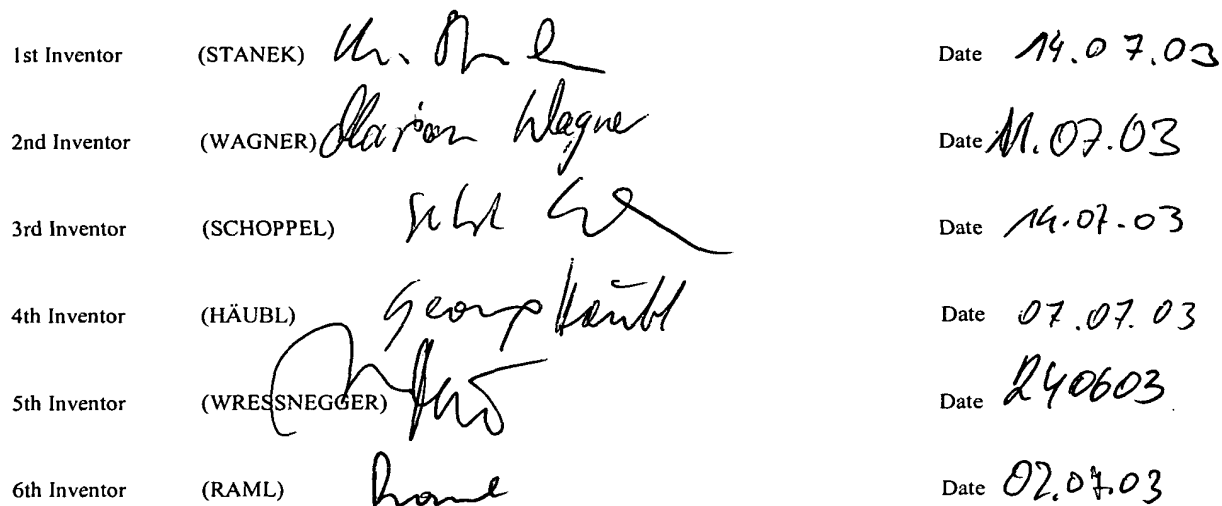 1st Inventor (STANEK) Date 14.07.03
2nd Inventor (WAGNER) Marion Wagner Date 11.07.03
3rd Inventor (SCHOPPEL) Date 14.07.03
4th Inventor (HÄUBL) Georg Häubl Date 07.07.03
5th Inventor (WRESSNEGGER) Date 240603
6th Inventor (RAML) Raml Date 02.07.03